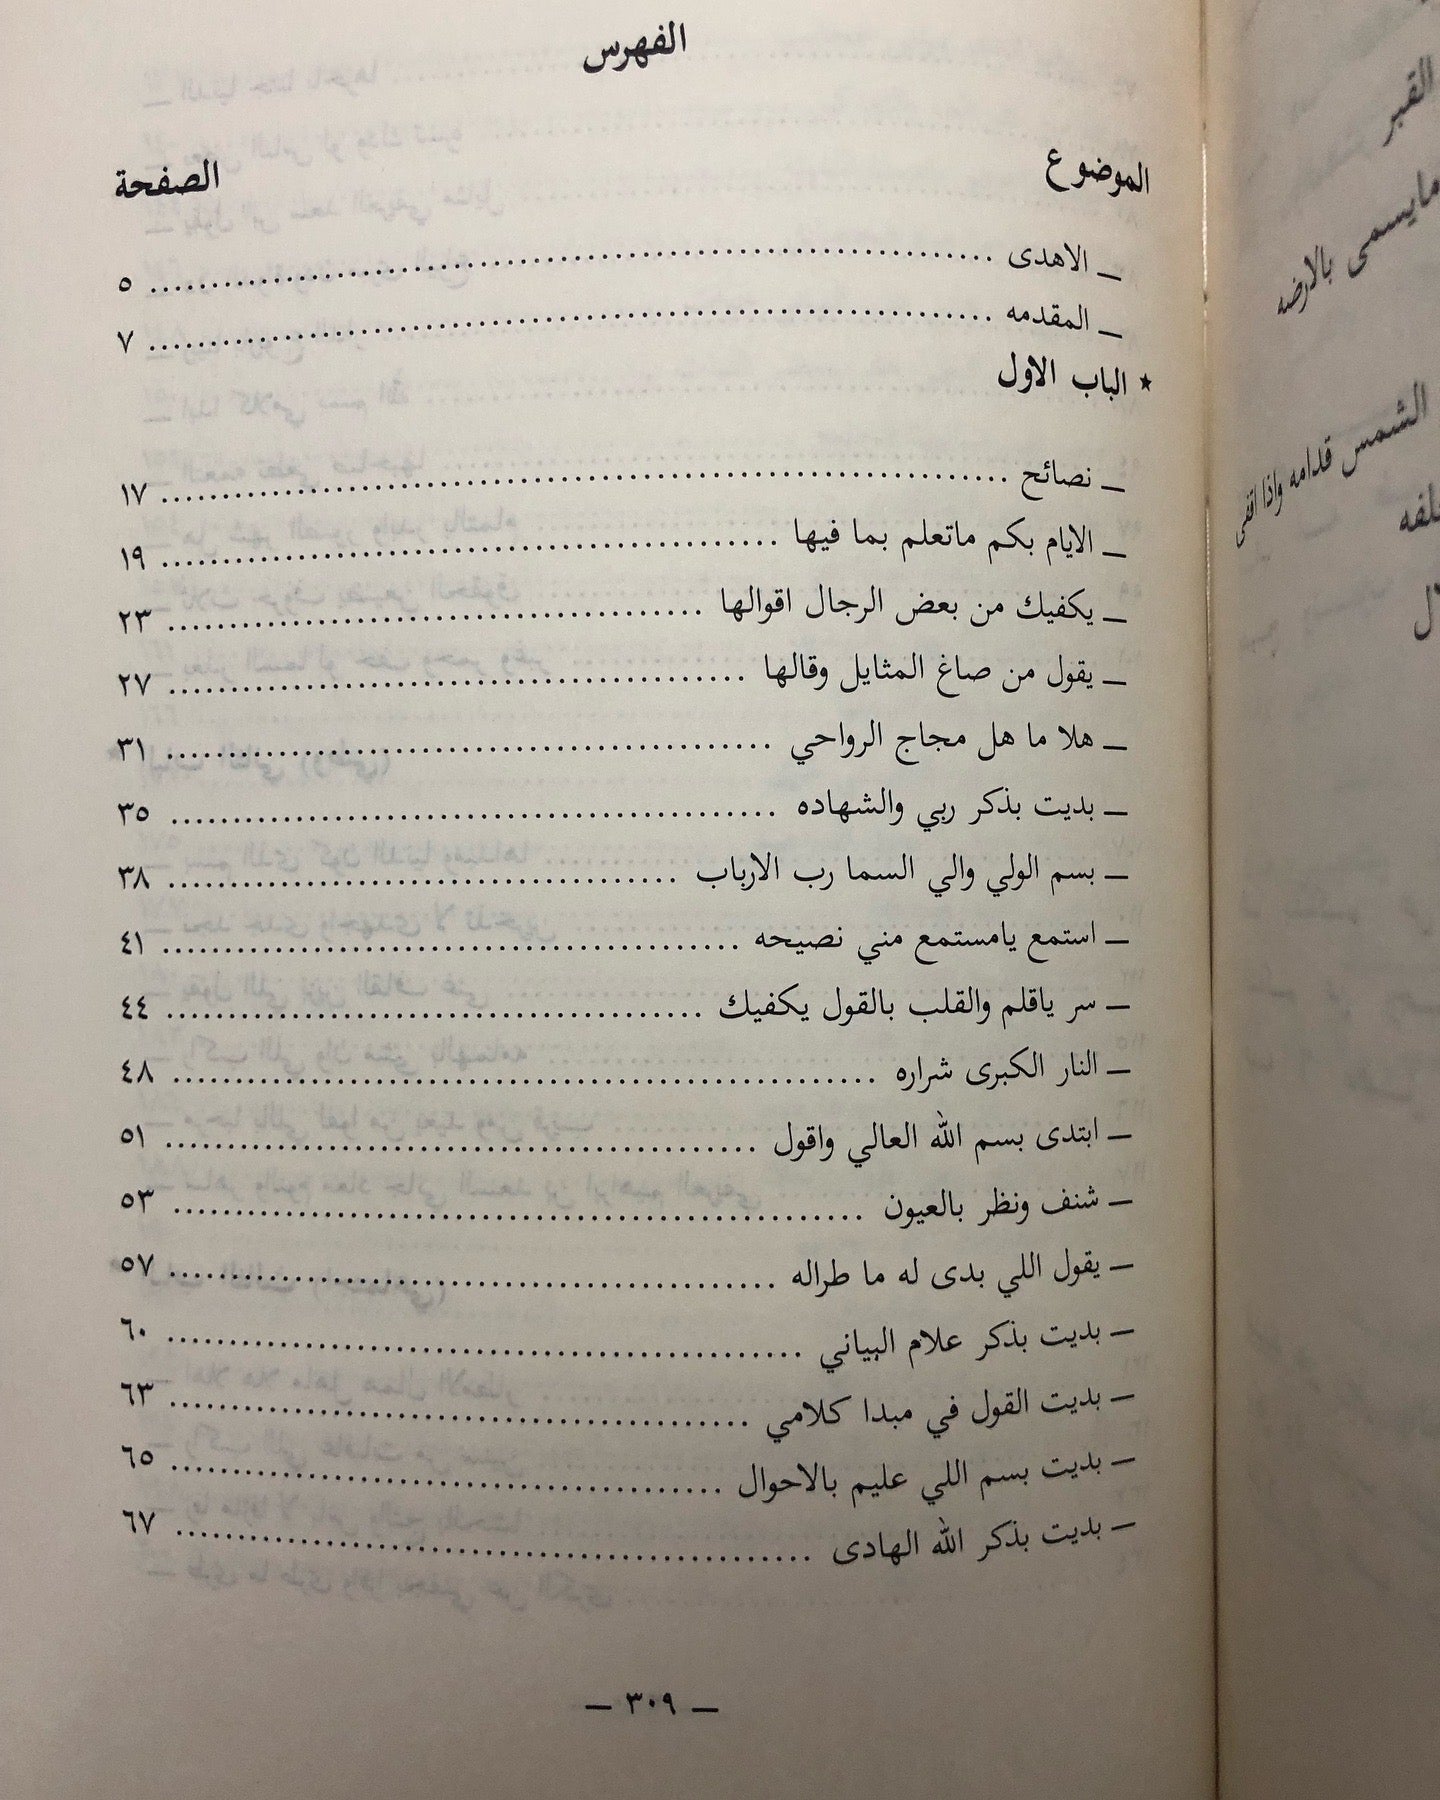 الفهرس
الموضوع الصفحة
ـ الاهدى ........ ٥
ـ المقدمه ........ ٧
★ الباب الاول
ـ نصائح ........ ١٧
ـ الايام بكم ماتعلم بما فيها ........ ١٩
ـ يكفيك من بعض الرجال اقوالها ........ ٢٣
ـ يقول من صاغ المثايل وقالها ........ ٢٧
ـ هلا ما هل مجاج الرواحي ........ ٣١
ـ بديت بذكر ربي والشهاده ........ ٣٥
ـ بسم الولي والي السما رب الارباب ........ ٣٨
ـ استمع يامستمع مني نصيحه ........ ٤١
ـ سر ياقلم والقلب بالقول يكفيك ........ ٤٤
ـ النار الكبرى شراره ........ ٤٨
ـ ابتدى بسم الله العالي واقول ........ ٥١
ـ شنف ونظر بالعيون ........ ٥٣
ـ يقول اللي بدى له ما طراله ........ ٥٧
ـ بديت بذكر علام البياني ........ ٦٠
ـ بديت القول في مبدا كلامي ........ ٦٣
ـ بديت بسم اللي عليم بالاحوال ........ ٦٥
ـ بديت بذكر الله الهادى ........ ٦٧
ـ ٣٠٩ ـ
القبر
مايسمى بالارضه
الشمس قدامه واذا اقفى